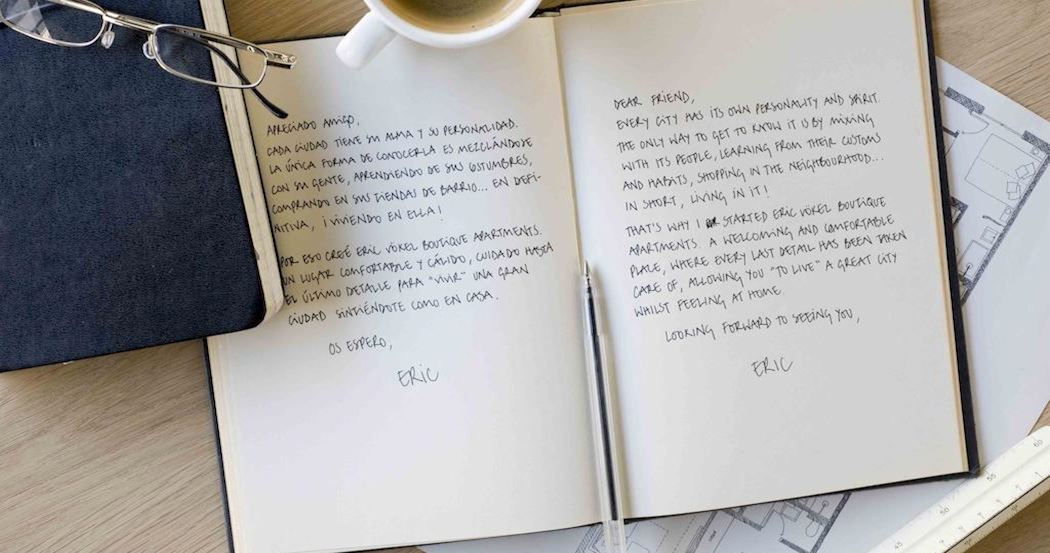 APRECIADO AMIGO,
CADA CIUDAD TIENE SU ALMA Y SU PERSONALIDAD.
LA ÚNICA FORMA DE CONOCERLA ES MEZCLÁNDOSE
CON SU GENTE, APRENDIENDO DE SUS COSTUMBRES,
COMPRANDO EN SUS TIENDAS DE BARRIO... EN DEFI-
NITIVA, ¡VIVIENDO EN ELLA!
POR ESO CREÉ ERIC VÖKEL BOUTIQUE APARTMENTS.
UN LUGAR COMFORTABLE Y CÁLIDO, CUIDADO HASTA
EL ÚLTIMO DETALLE PARA "VIVIR" UNA GRAN
CIUDAD SINTIÉNDOTE COMO EN CASA.
OS ESPERO,
ERIC
DEAR FRIEND,
EVERY CITY HAS ITS OWN PERSONALITY AND SPIRIT.
THE ONLY WAY TO GET TO KNOW IT IS BY MIXING
WITH ITS PEOPLE, LEARNING FROM THEIR CUSTOMS
AND HABITS, SHOPPING IN THE NEIGHBOURHOOD...
IN SHORT, LIVING IN IT!
THAT'S WHY I STARTED ERIC VÖKEL BOUTIQUE
APARTMENTS. A WELCOMING AND COMFORTABLE
PLACE, WHERE EVERY LAST DETAIL HAS BEEN TAKEN
CARE OF, ALLOWING YOU "TO LIVE" A GREAT CITY
WHILST FEELING AT HOME.
LOOKING FORWARD TO SEEING YOU,
ERIC
45
50
55
60